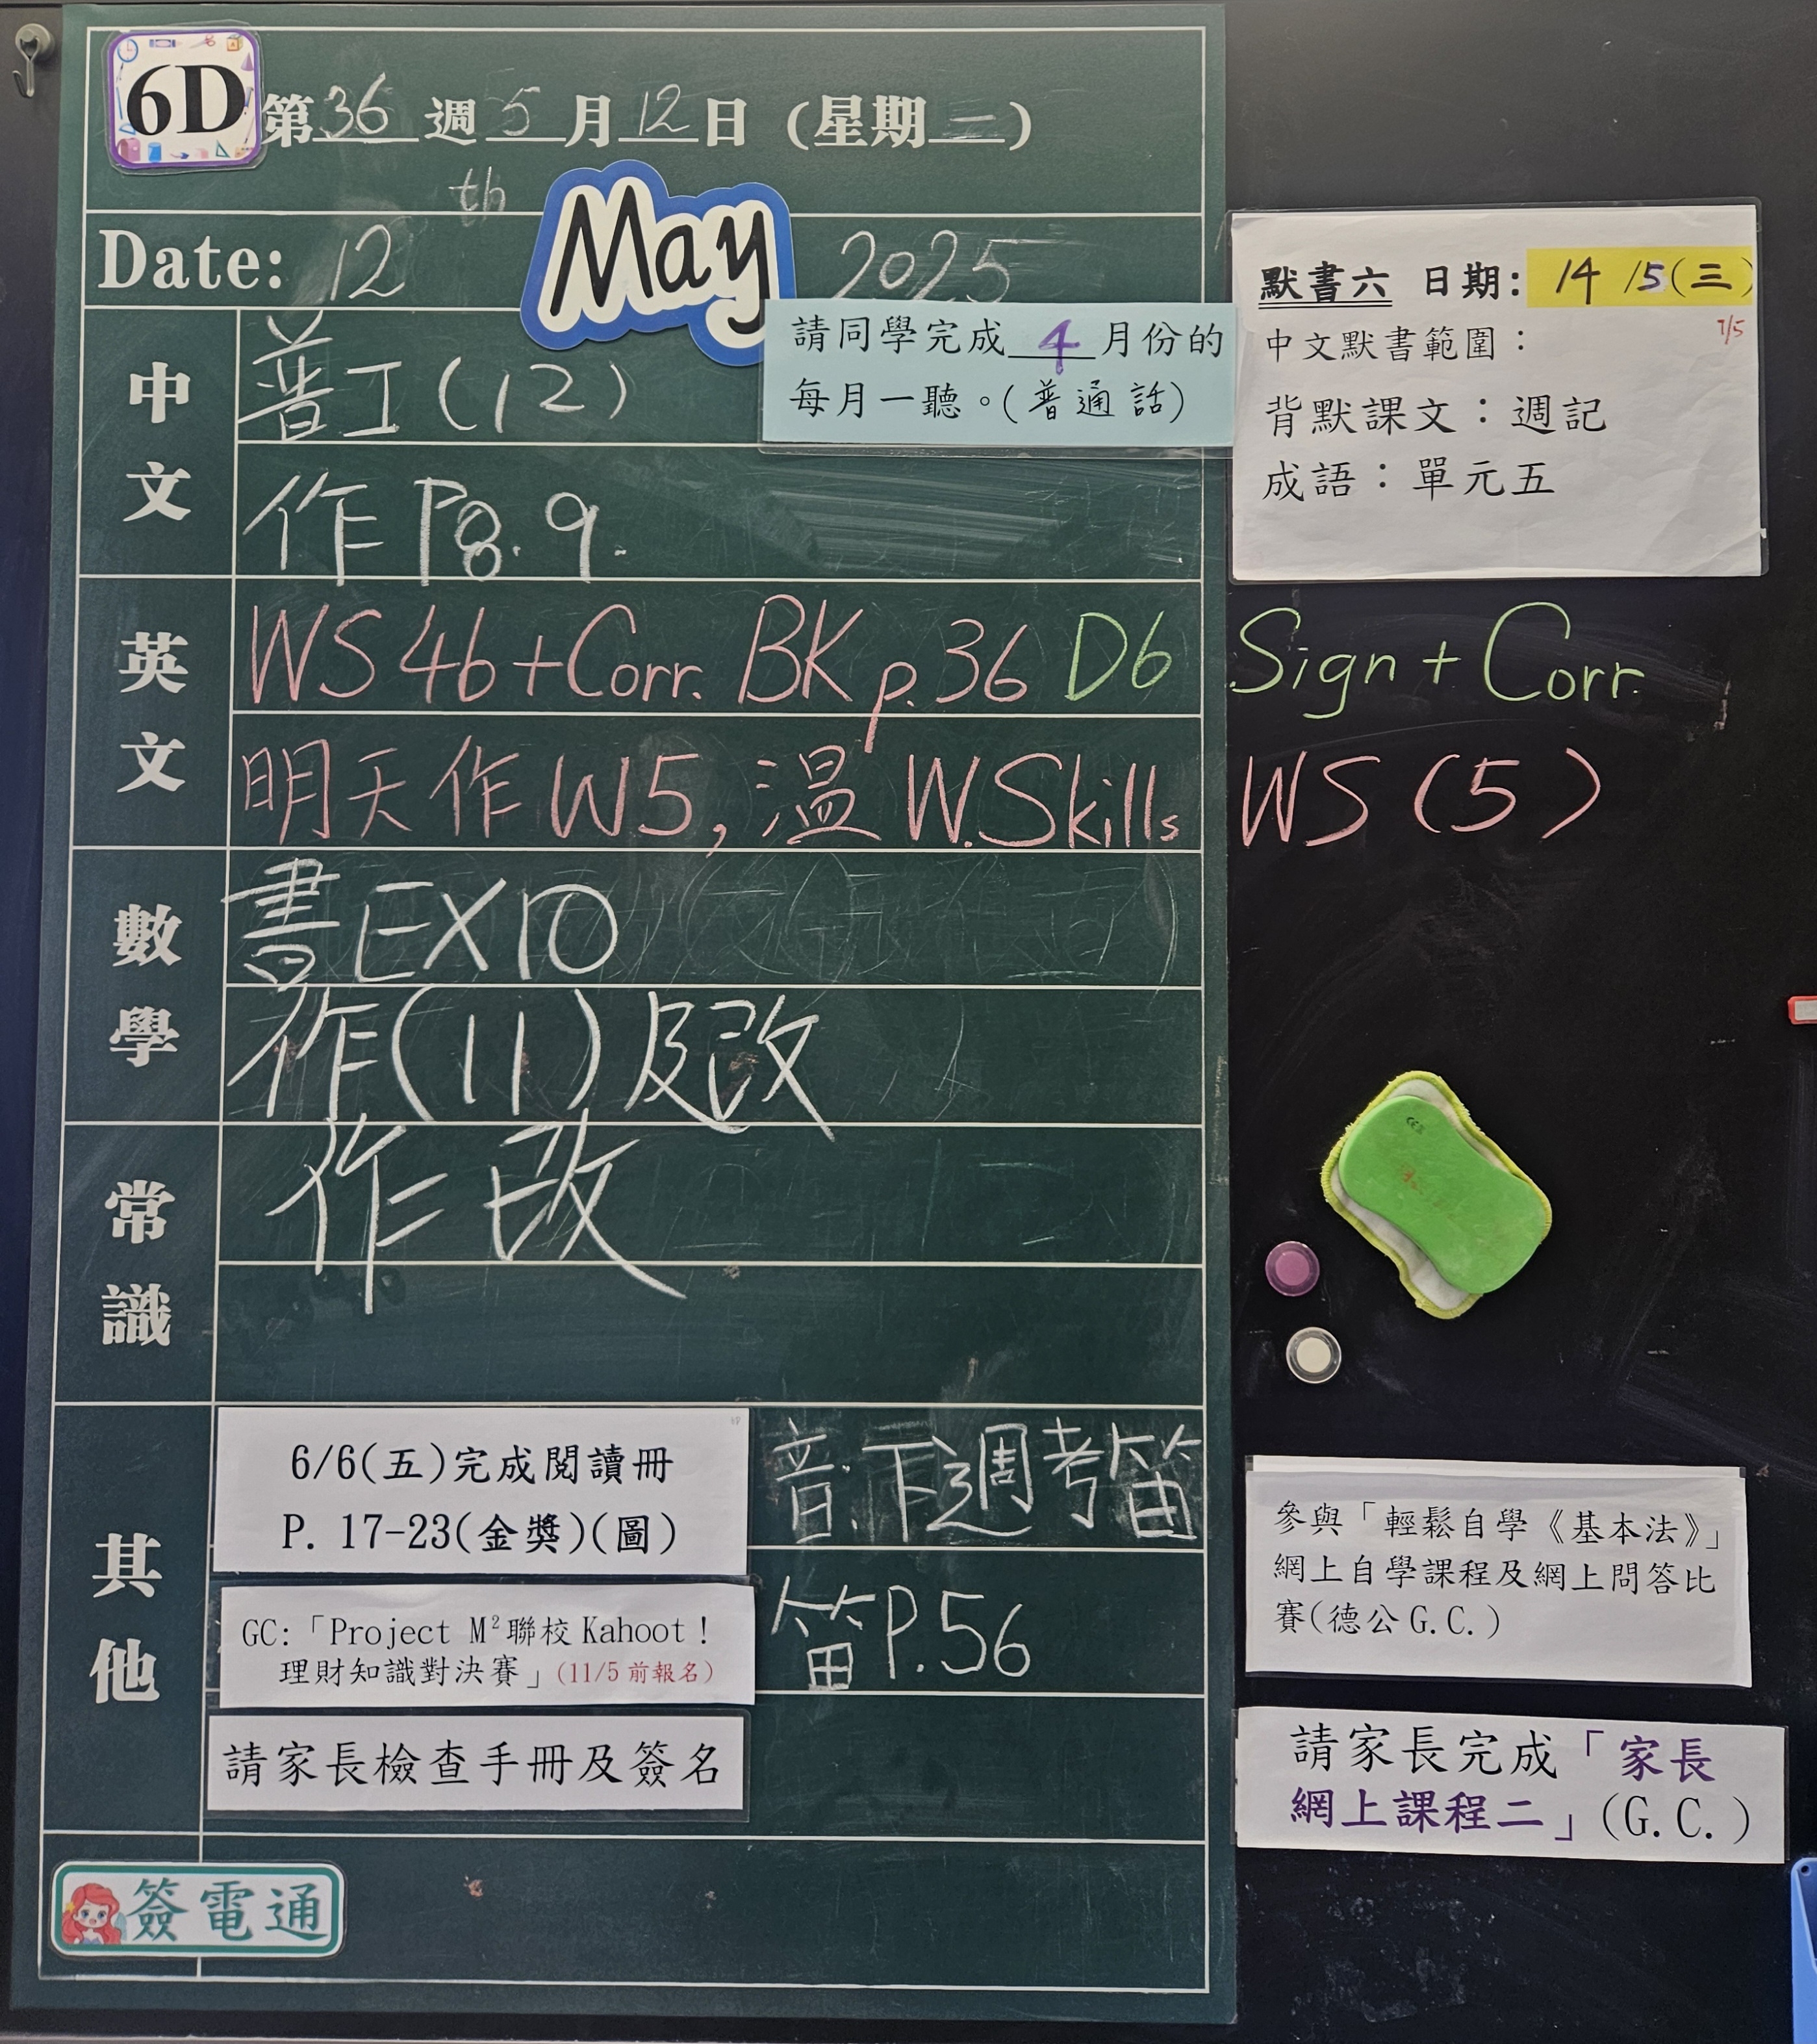 6D 第36週5月12日(星期一)
Date: 12th May 2025
請同學完成4月份的
每月一聽。(普通話)
默書六 日期: 14/5(三)
7/5
中文默書範圍:
背默課文:週記
成語:單元五
中文
普工(12)
作P8.9.
英文
WS 4b+Corr. BK p.36 D6 Sign+Corr.
明天作W5,溫 W.Skills WS(5)
數學
書EX10
作(11)及改
常識
作改
其他
6/6(五)完成閱讀冊
P. 17-23(金獎)(圖)
音:下週考笛
GC:「Project M²聯校Kahoot!
理財知識對決賽」(11/5前報名)
笛P.56
請家長檢查手冊及簽名
參與「輕鬆自學《基本法》」
網上自學課程及網上問答比
賽(德公G.C.)
請家長完成「家長
網上課程二」(G.C.)
簽電通